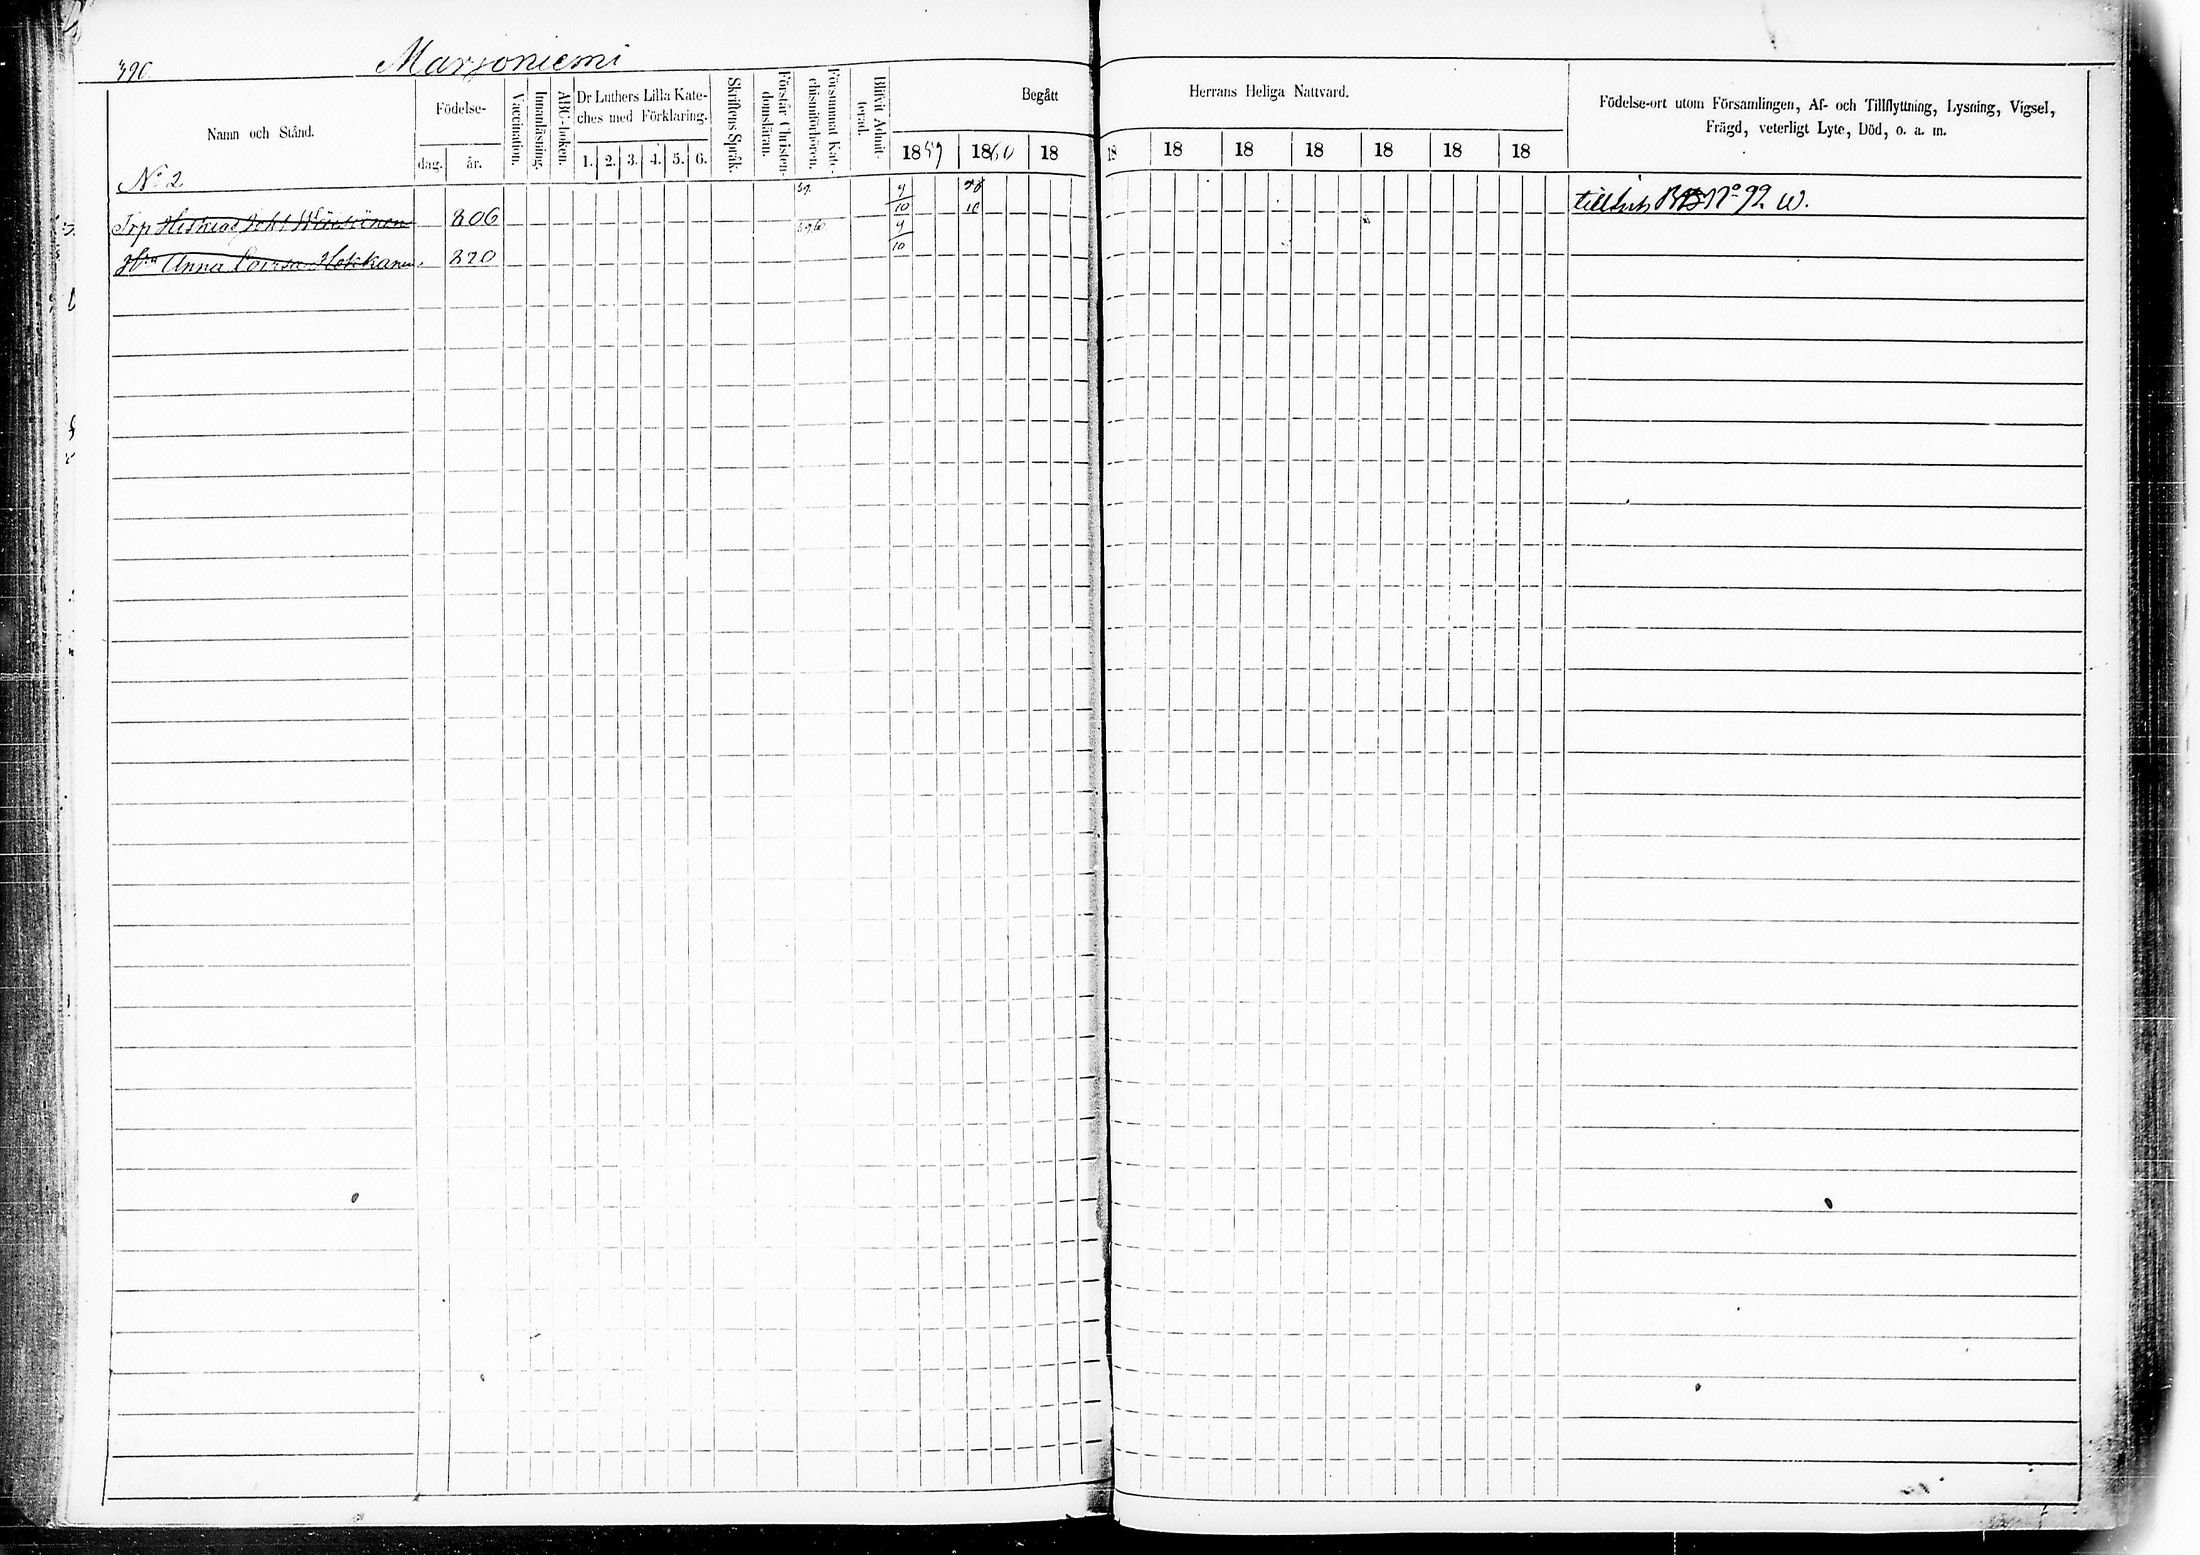 390.
Marjoniemi
Namn och Stånd.
Födelse-
dag. år.
Vaccination.
Innanläsning.
ABC-boken.
Dr Luthers Lilla Kate-
ches med Förklaring.
1. 2. 3. 4. 5. 6.
Skriftens Språk.
Förstår Christen-
domsläran.
Försummat Kat-
chismiförhören.
Blifvit Admit-
terad.
Begått
1859 1860 18
Herrans Heliga Nattvard.
18 18 18 18 18 18 18
Födelse-ort utom Församlingen, Af- och Tillflyttning, Lysning, Vigsel,
Frägd, veterligt Lyte, Död, o. a. m.
No 2
Johs 806 59. 9/10
Hu Anna Lovisa Hokkanen 820 59,60 9/10
No 92